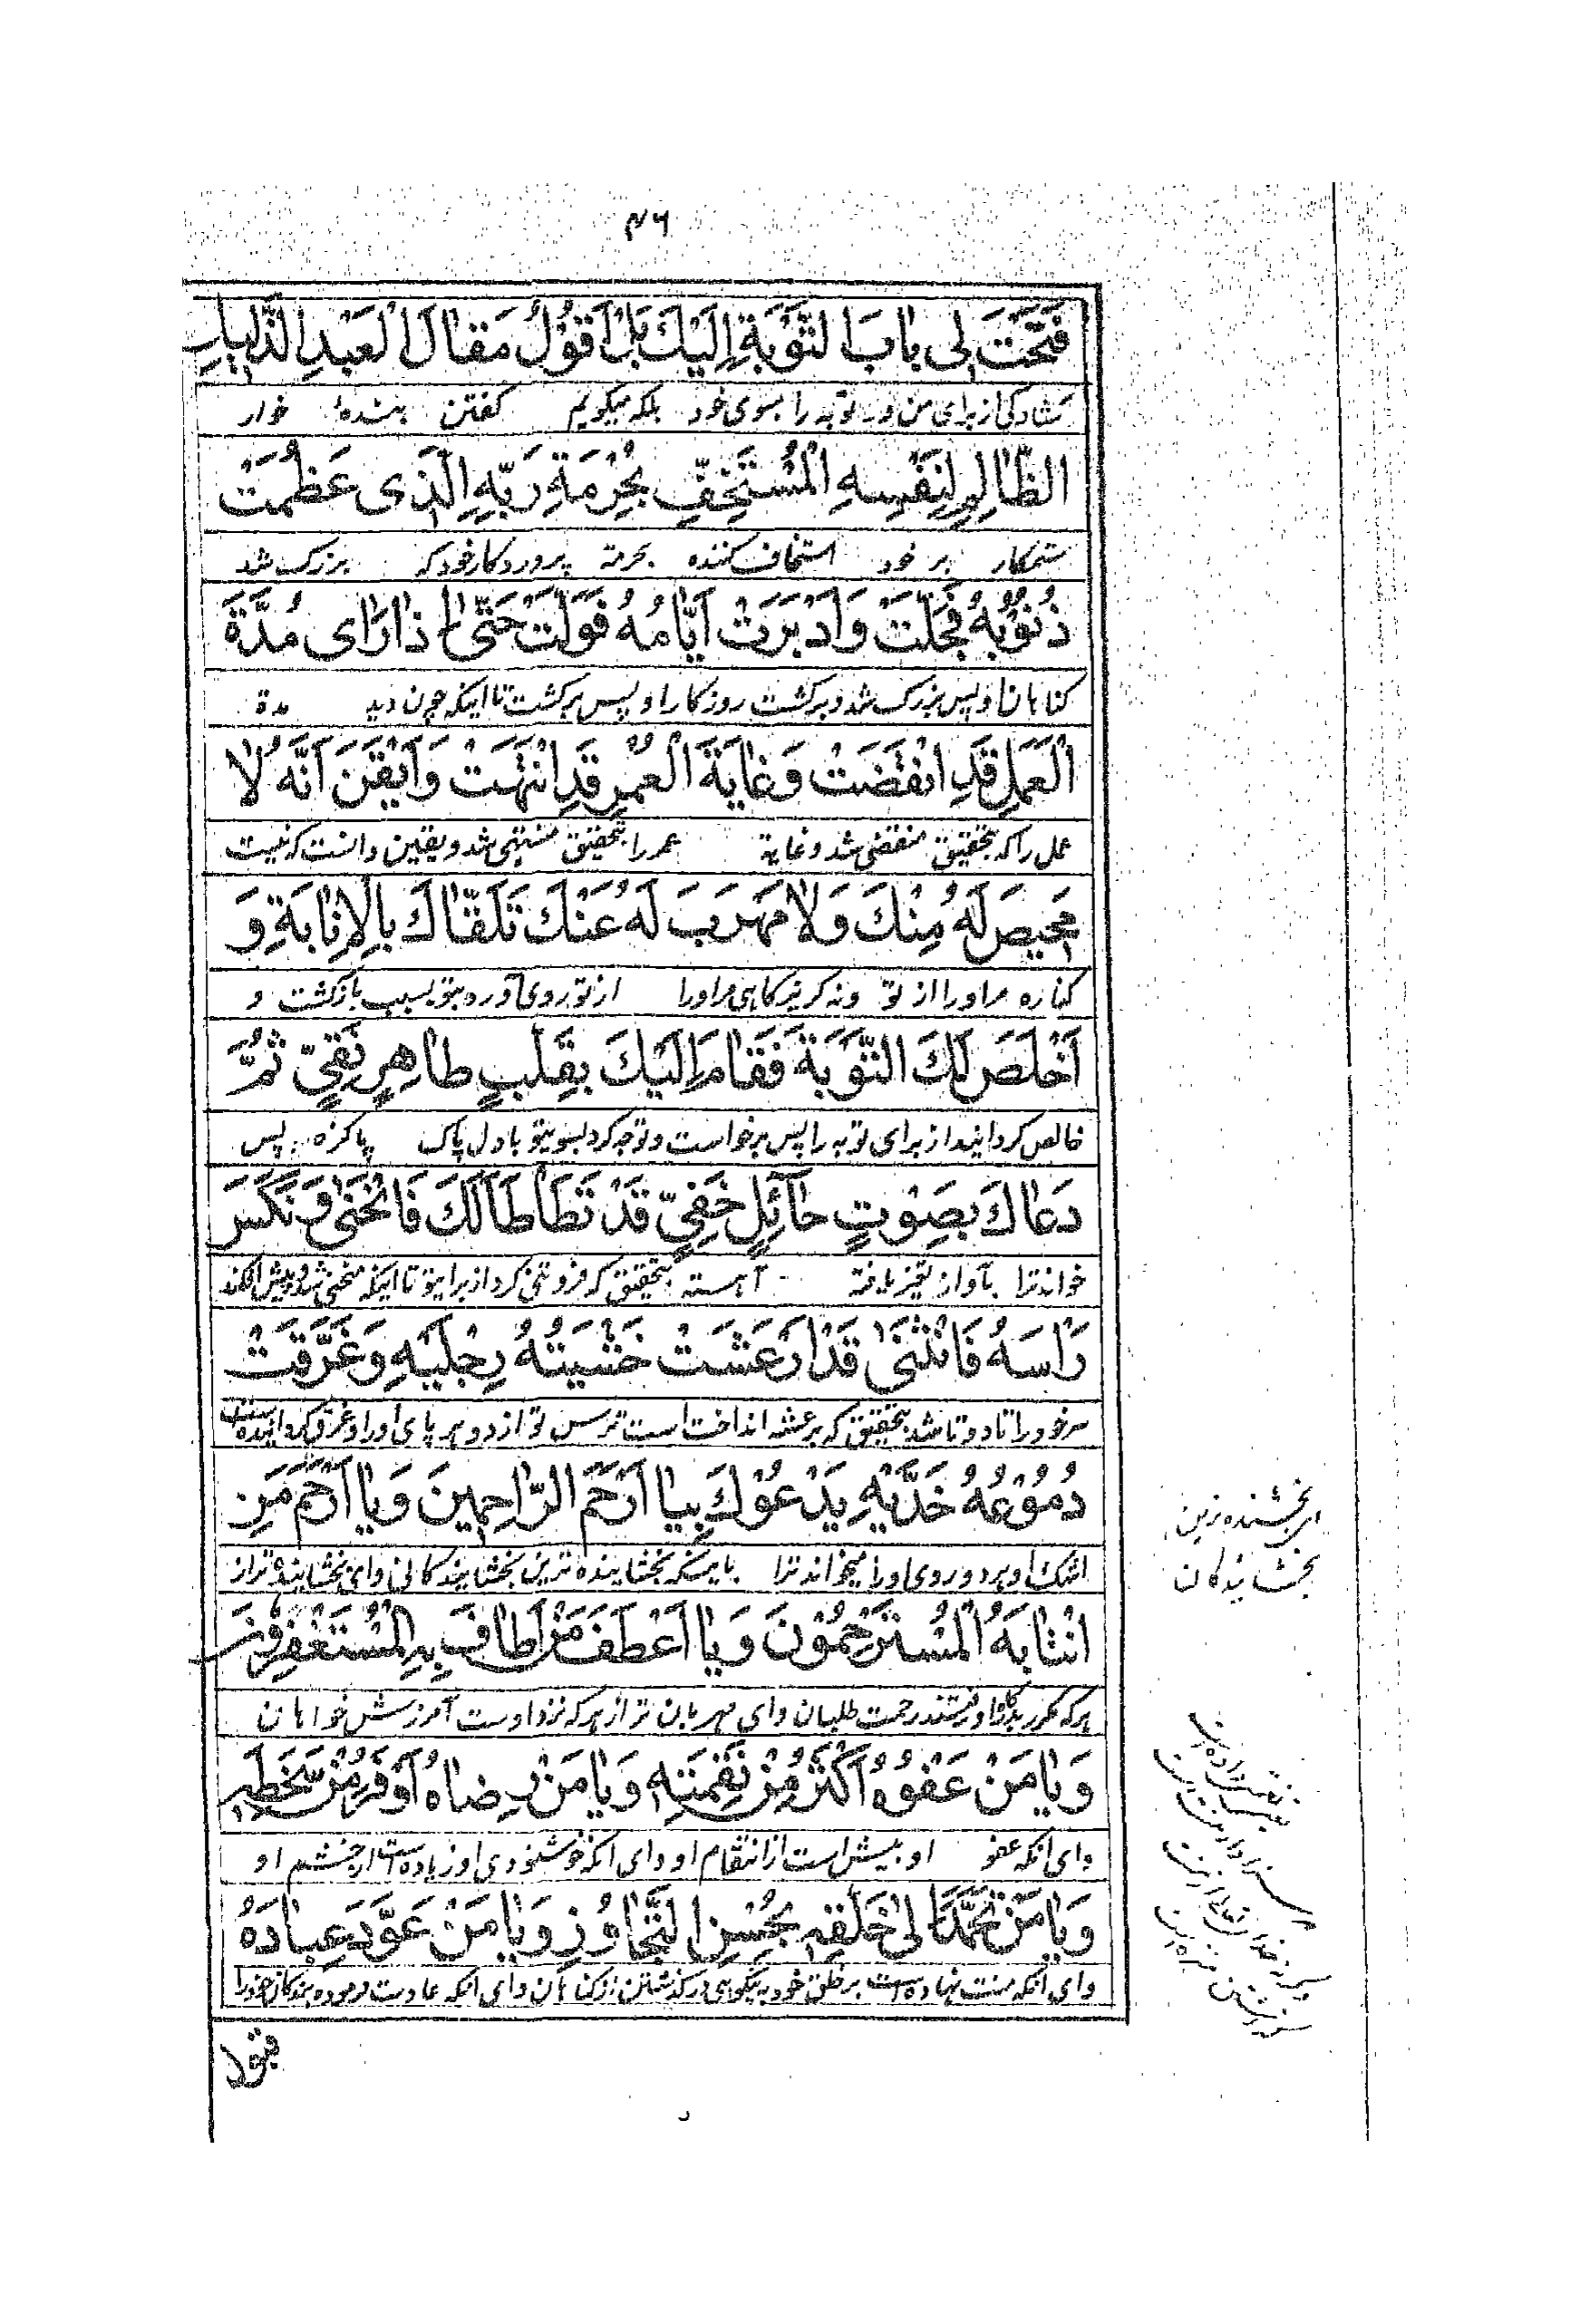 ۴۶
فَتَحْتَ لِی بابَ التَّوْبَةِ اِلَیْكَ بَلْ اَقُوْلُ مَقالَ الْعَبْدِ الذَّلیلِ
کشادی از برای من در توبه را بسوی خود بلکه میگویم گفتن بنده خوار
الظّالِمِ لِنَفْسِهِ الْمُسْتَخِفِّ بِحُرْمَةِ رَبِّهِ الَّذی عَظُمَتْ
ستمکار بر خود استخفاف کننده بحرمة پروردکار خود که بزرک شد
ذُنُوْبُهُ فَجَلَّتْ وَاَدْبَرَتْ اَیّامُهُ فَوَلَّتْ حَتّٰی اِذا رَاٰی مُدَّةَ
کناهان او پس بزرک شد و برکشت روزکار او پس برکشت تا اینکه چون دید مدة
الْعَمَلِ قَدِ انْقَضَتْ وَغایَةَ الْعُمُرِ قَدِ انْتَهَتْ وَاَیْقَنَ اَنَّهُ لا
عمل را که بتحقیق منقضی شد و غایة عمر را بتحقیق منتهی شد و یقین دانست که نیست
مَحیصَ لَهُ مِنْكَ وَلا مَهْرَبَ لَهُ عَنْكَ تَلَقّاكَ بِالْاِنابَةِ وَ
کناره مر اورا از تو و نه کریزکاهی مر اورا از تو روی آورده بتو بسبب بازکشت و
اَخْلَصَ لَكَ التَّوْبَةَ فَقامَ اِلَیْكَ بِقَلْبٍ طاهِرٍ نَقِیٍّ ثُمَّ
خالص کردانید از برای توبه را پس برخواست و توجه کرد بسویتو با دل پاک پاکزه پس
دَعاكَ بِصَوْتٍ حآئِلٍ خَفِیٍّ قَدْ تَطَاْطَاَ لَكَ فَانْحَنٰی وَنَكَّسَ
خواند ترا بآواز تغیر یافته آهسته بتحقیق که فروتنی کرد از برایتو تا اینکه منحنی شد و پیش افکند
رَاْسَهُ فَانْثَنٰی قَدْ اَرْعَشَتْ خَشْیَتُهُ رِجْلَیْهِ وَغَرَّقَتْ
سر خود را تا دوتا شد بتحقیق که برعشه انداخت است ترس تو از دو هر پای او را و غرق کردانیده است
دُمُوْعُهُ خَدَّیْهِ یَدْعُوْكَ بِیا اَرْحَمَ الرّاحِمینَ وَیا اَرْحَمَ مَنِ
اشک او هر دو روی او را میخواند ترا باینکه بخشاینده ترین بخشایندکانی و ای بخشاینده تر از
انْتابَهُ الْمُسْتَرْحِمُوْنَ وَیا اَعْطَفَ مَنْ اَطافَ بِهِ الْمُسْتَغْفِرُوْنَ
هر که مکرر بدرکاه او رفتند رحمت طلبان و ای مهربان تر از هر که نزد اوست آمرزش خواهان
وَیا مَنْ عَفْوُهُ اَكْثَرُ مِنْ نَقِمَتِهِ وَیا مَنْ رِضاهُ اَوْفَرُ مِنْ سَخَطِهِ
وای انکه عفو او بیش است از انتقام او و ای انکه خوشنودی او زیاده است از خشم او
وَیا مَنْ تَحَمَّدَ اِلٰی خَلْقِهِ بِحُسْنِ التَّجاوُزِ وَیا مَنْ عَوَّدَ عِبادَهُ
وای انکه منت نهاده است بر خلق خود به نیکویی در کذشتن از کناهان وای انکه عادت فرموده بندکان خود را
قبول
ای بخشنده ترین
بخشایندکان